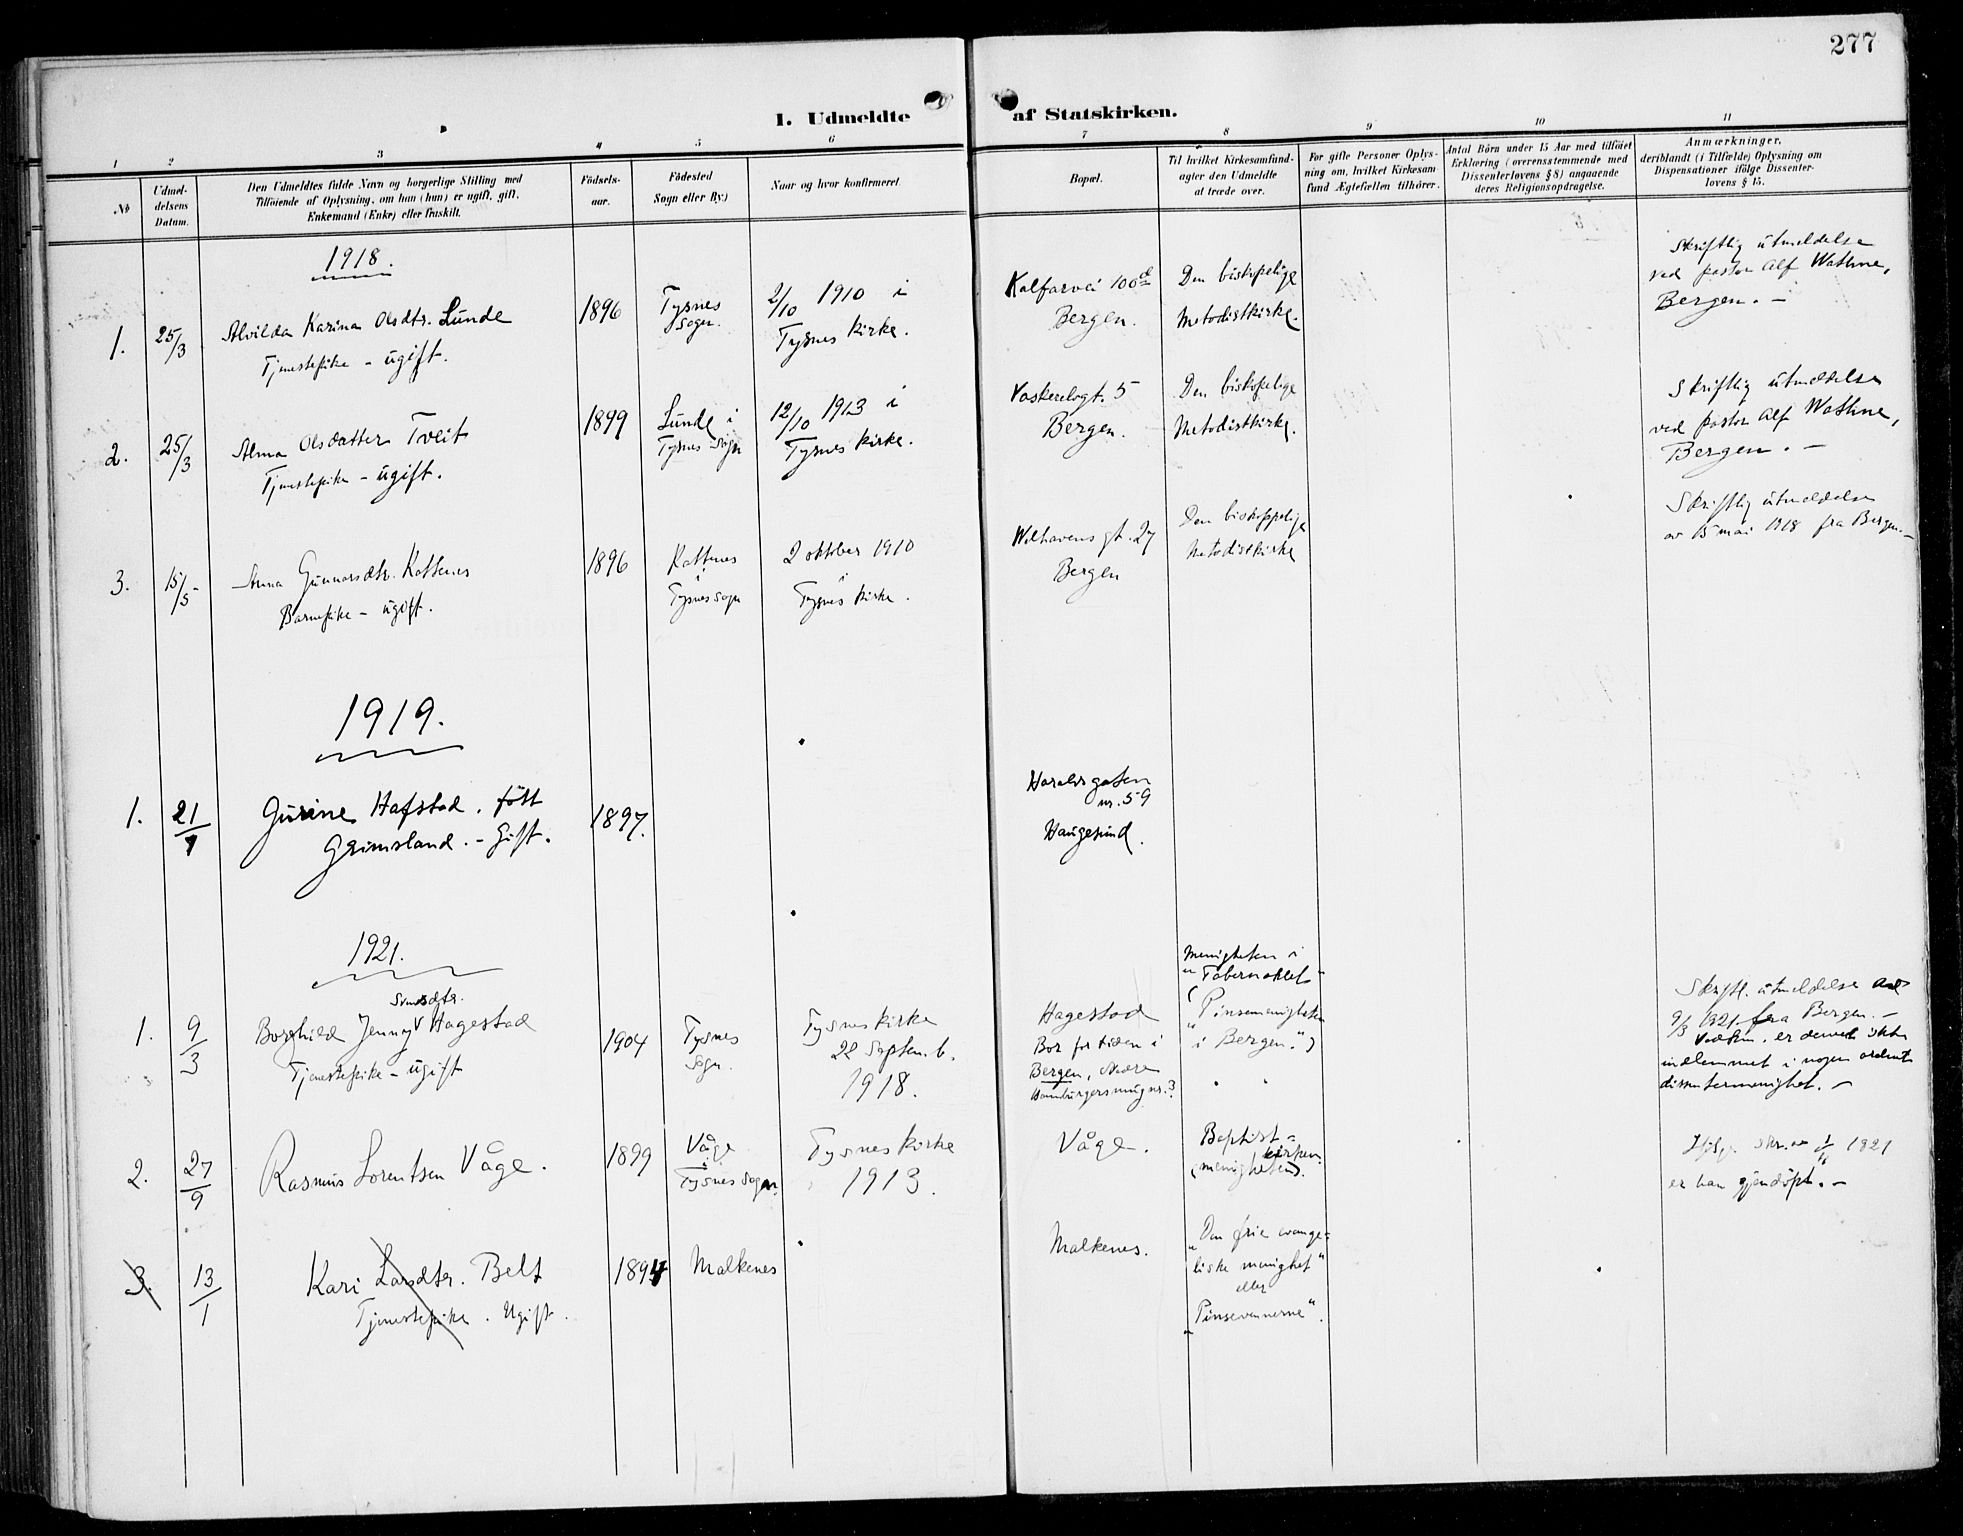 277
1. Udmeldte af Statskirken.
1 2 3 4 5 6 7 8 9 10 11
No
Udmel-
delsens
Datum.
Den Udmeldtes fulde Navn og borgerlige Stilling med
Tilföiende af Oplysning, om han (hun) er ugift, gift,
Enkemand (Enke) eller fraskilt.
Födsels-
aar.
Födested
Sogn eller By.)
Naar og hvor konfirmeret
Bopæl.
Til hvilket Kirkesamfund-
agter den Udmeldte
at træde over.
For gifte Personer Oplys-
ning om, hvilket Kirkesam-
fund Ægtefællen tilhörer.
Antal Börn under 15 Aar med tilföiet
Erklæring (overensstemmende med
Dissenterlovens § 8) angaaende
deres Religionsopdragelse.
Anmærkninger,
deriblandt (i Tilfælde) Oplysning om
Dispensationer ifölge Dissenter-
lovens § 15.
1918.
1. 25/3
Alvilda Karina Olsdtr. Lunde
Tjenestepike - ugift.
1896
Tysnes
Sogn.
2/10 1910 i
Tysnes kirke.
Kalfarvei 100d
Bergen.
Den biskopelige
Metodistkirke.
Skriftlig utmeldelse
ved pastor Alf Wathne,
Bergen. -
2. 25/3
Alma Olsdatter Tveit
Tjenestepike - ugift.
1899
Lunde i
Tysnes Sogn
12/10 1913 i
Tysnes kirke.
Vaskerelvgt. 5
Bergen.
Den biskopelige
Metodistkirke.
Skriftlig utmeldelse
ved pastor Alf Wathne,
Bergen. -
3. 15/5
Anna Gunnarsdtr. Kattenes
Barnepike - ugift.
1896
Kattnes
i
Tysnes Sogn
2 oktober 1910
i
Tysnes kirke.
Welhavens gt. 27
Bergen
Den biskoppelige
Metodistkirke
Skriftlig utmeldelse
av 15 mai 1918 fra Bergen. -
1919.
1. 21/7
Gurine Hafstad. født
Grimsland. - Gift.
1897.
Haraldsgaten
nr. 59
Haugesund.
1921.
1. 9/3
Svendsdtr.
Borghild Jenny V Hagestad
Tjenestepike - ugift
1904
Tysnes
Sogn.
Tysnes kirke
22 Septemb.
1918.
Hagestad
Bor for tiden i
Bergen, Nedre
Hamburgersmug nr. 3
Menigheten i
"Tabernaklet"
("Pinsemenigheten
i Bergen.")
Skriftl. utmeldelse av
9/3 1921 fra Bergen. -
Vedkm. er dermed ikke
indlemmet i nogen ordentl.
dissentermenighet. -
2. 27/9
Rasmus Lorentsen Våge.
1899
Våge
i
Tysnes Sogn.
Tysnes kirke
1913.
Våge.
Baptist-
kirken.
(menigheten).
Ifølg. skr. av 1821
er han gjendöpt. -
3. 13/1
Kari Larsdtr. Belt
Tjenestepike. Ugift.
1894
Malkenes
Malkenes.
"Den frie evange-
liske menighet"
eller
"Pinsevennerne".